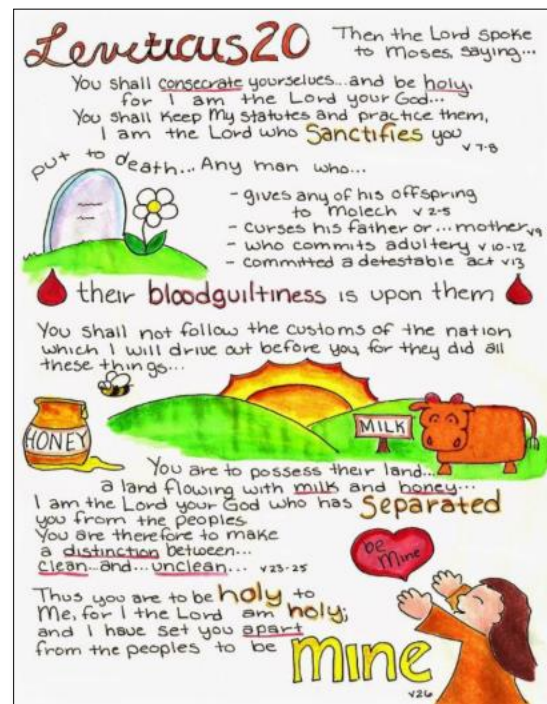 Leviticus 20
Then the Lord spoke
to Moses, saying...
You shall consecrate yourselves...and be holy,
for I am the Lord your God...
You shall keep My statutes and practice them,
I am the Lord who Sanctifies you
v 7-8
put to death... Any man who...
- gives any of his offspring
to Molech v 2-5
- curses his father or... mother v9
- who commits adultery v 10-12
- committed a detestable act v13
their bloodguiltiness is upon them
You shall not follow the customs of the nation
which I will drive out before you, for they did all
these things...
HONEY
MILK
You are to possess their land...
a land flowing with milk and honey...
I am the Lord your God who has Separated
you from the peoples
You are therefore to make
a distinction between...
clean...and...unclean... v23-25
be
Mine
Thus you are to be holy to
Me, for I the Lord am holy;
and I have set you apart
from the peoples to be
mine
v26